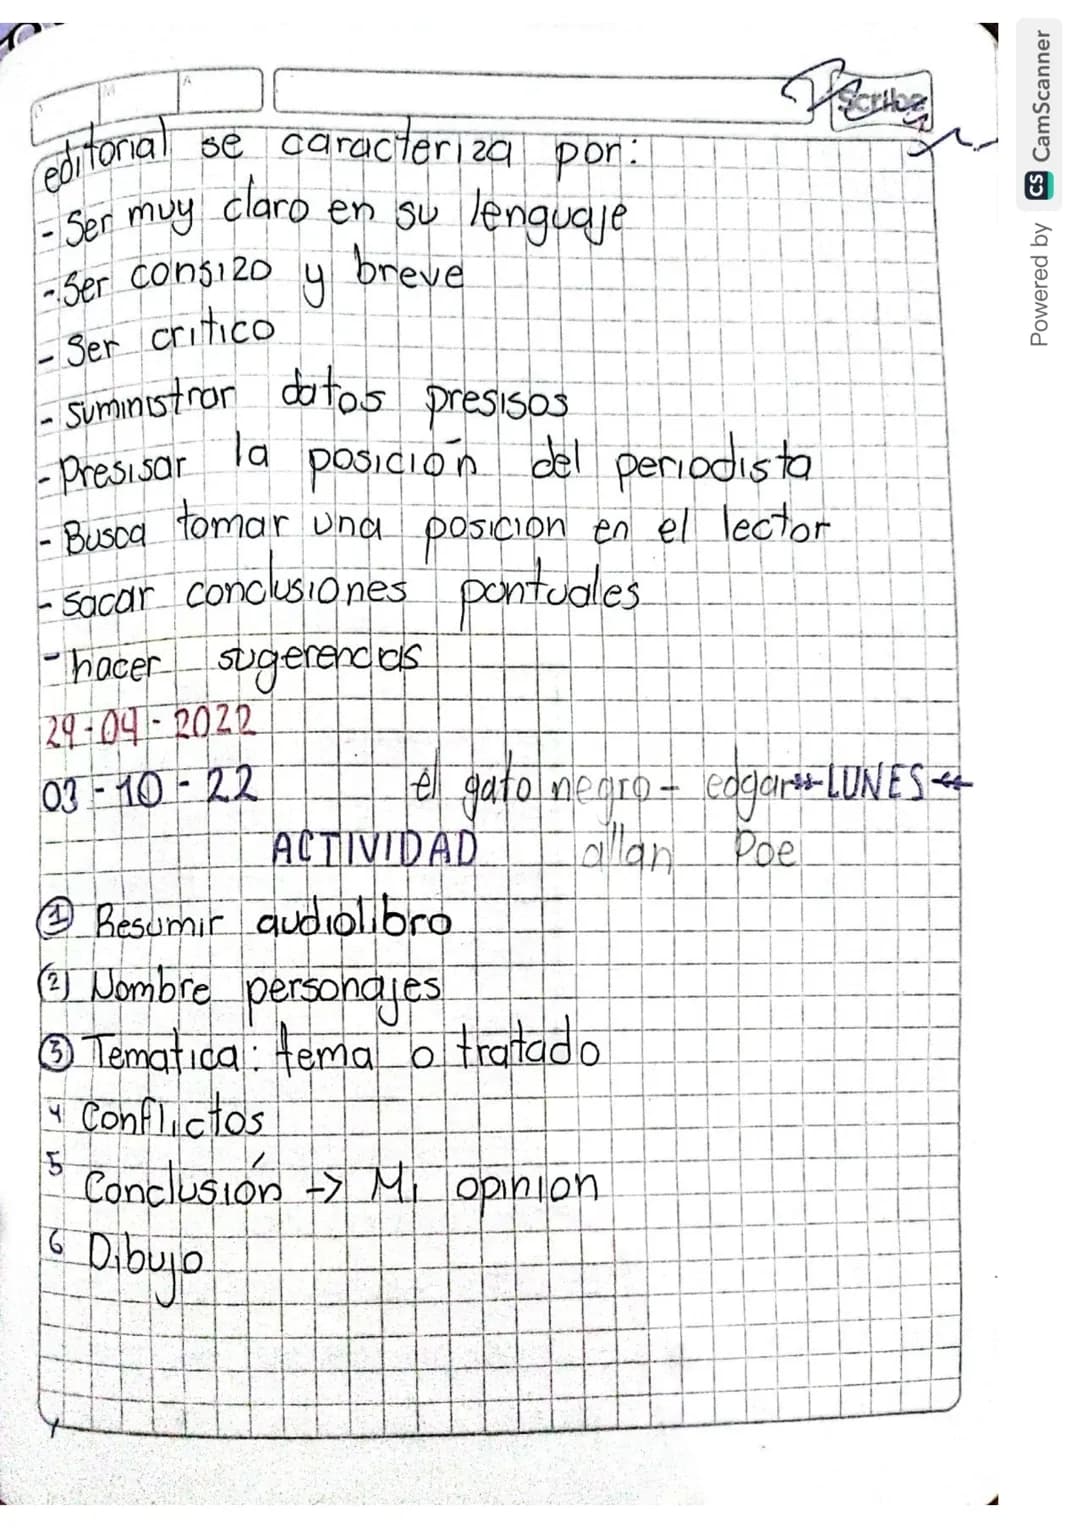 Scribe
editorial se caracteriza por:
- Ser muy claro en su lenguaje
- Ser consizo y breve
- Ser critico
- suministrar datos presisos
- Presisar la posición del periodista
- Busca tomar una posicion en el lector
- sacar conclusiones pontuales
- hacer sugerencias
29-04-2022
03-10-22 el gato negro - edgar LUNES
ACTIVIDAD allan Poe
① Resumir audiolibro
② Nombre personajes
③ Tematica: tema o tratado
4 Conflictos
5 Conclusión -> Mi opinion
6 Dibujo
Powered by CS CamScanner